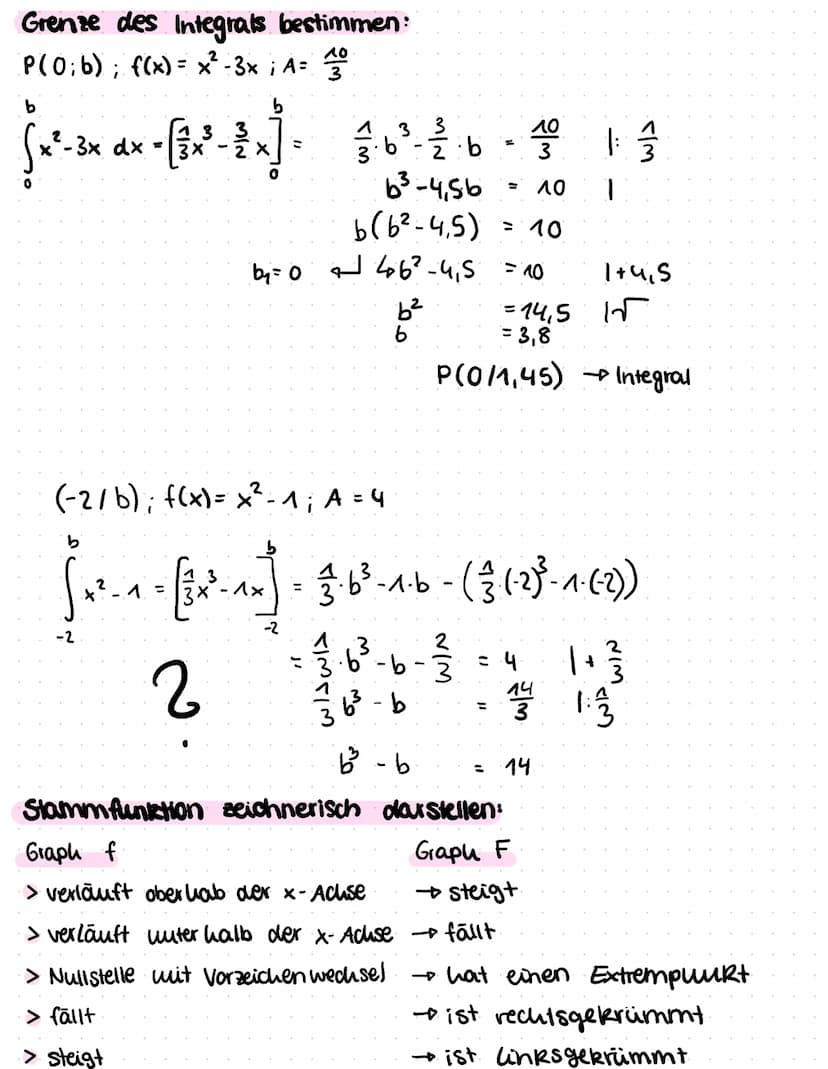 Grenze des Integrals bestimmen:
P(0;b) ; f(x) = x² - 3x ; A = 10/3
∫₀ᵇ x² - 3x dx = [1/3 x³ - 3/2 x]₀ᵇ = 1/3 · b³ - 3/2 · b = 10/3 | : 1/3
b³ - 4,5b = 10 |
b(b² - 4,5) = 10
b₁ = 0 ↵ ↳ b² - 4,5 = 10 | + 4,5
b² = 14,5 | √
b = 3,8
P(0/1,45) → Integral
(-2/b) ; f(x) = x² - 1 ; A = 4
∫₋₂ᵇ x² - 1 = [1/3 x³ - 1x]₋₂ᵇ = 1/3 · b³ - 1 · b - (1/3 · (-2)³ - 1 · (-2))
= 1/3 · b³ - b - 2/3 = 4 | + 2/3
? 1/3 b³ - b = 14/3 | : 1/3
b³ - b = 14
Stammfunktion zeichnerisch darstellen:
Graph f Graph F
> verläuft oberhab der x-Achse → steigt
> verläuft unterhalb der x-Achse → fällt
> Nullstelle mit Vorzeichenwechsel → hat einen Extrempunkt
> fällt → ist rechtsgekrümmt
> steigt → ist linksgekrümmt